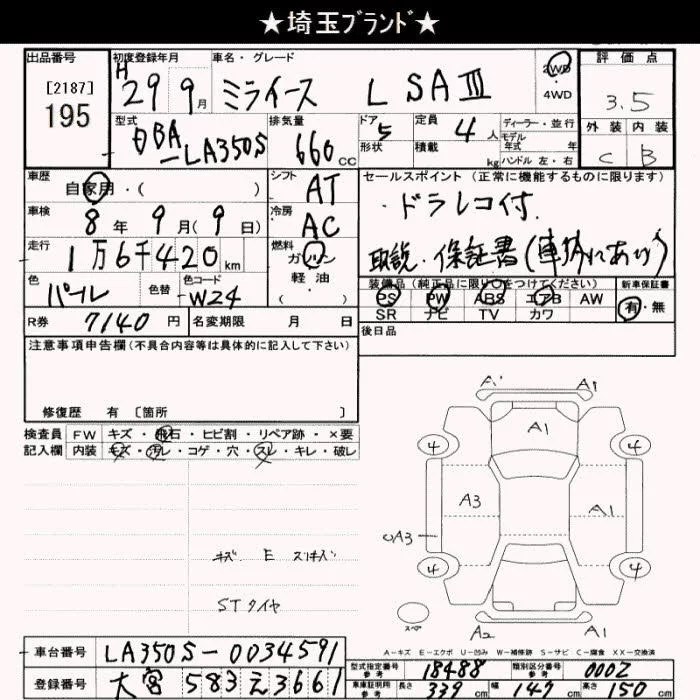 ★埼玉ﾌﾞﾗﾝﾄﾞ★
出品番号 初度登録年月 車名・グレード 2WD 評価点
[2187] H 29 9月 ミライース L SAⅢ 4WD 3.5
195 型式 排気量 ドア 5 定員 4人 ディーラー・並行 外装 内装
DBA-LA350S 660cc 形状 積載 kg モデル年式 年式 ハンドル 左・右 C B
車歴 自家用・( ) シフト AT セールスポイント (正常に機能するものに限ります)
車検 8年 9月 (9日) 冷房 AC ・ドラレコ付.
走行 1万6千420km 燃料 ガソリン 取説・保証書(車外にあり)
色 パール 色替 色コード W24 軽・油 ( ) 装備品 (純正品に限り○をつけてください) 新車保証書
PS PW ABS エアB AW 有・無
R券 7140円 名変期限 月 日 SR ナビ TV カワ
注意事項申告欄(不具合内容等は具体的に記入して下さい) 後日品
修復歴 有 〔箇所 〕
A1 A1
A1
4 4
A3 A1
UA3
4 4
スペア
A2 A1
検査員 FW キズ・飛石・ヒビ割・リペア跡・×要
記入欄 内装 キズ・汚レ・コゲ・穴・スレ・キレ・破レ
キズ E スリキズ
STタイヤ
A-キズ E-エクボ U-凹み W-補修跡 S-サビ C-腐食 XX-交換済
車台番号 LA350S-0034591 型式指定番号 参考 18488 類別区分番号 参考 0002
登録番号 大宮 583 え 3661 車庫証明用 参考 長さ 339cm 幅 147cm 高さ 150cm